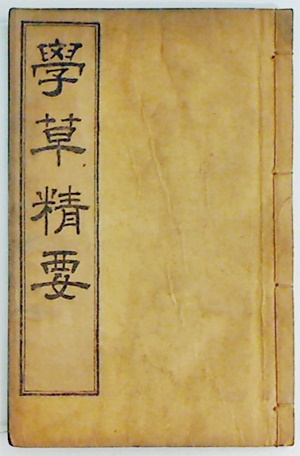 學草精要